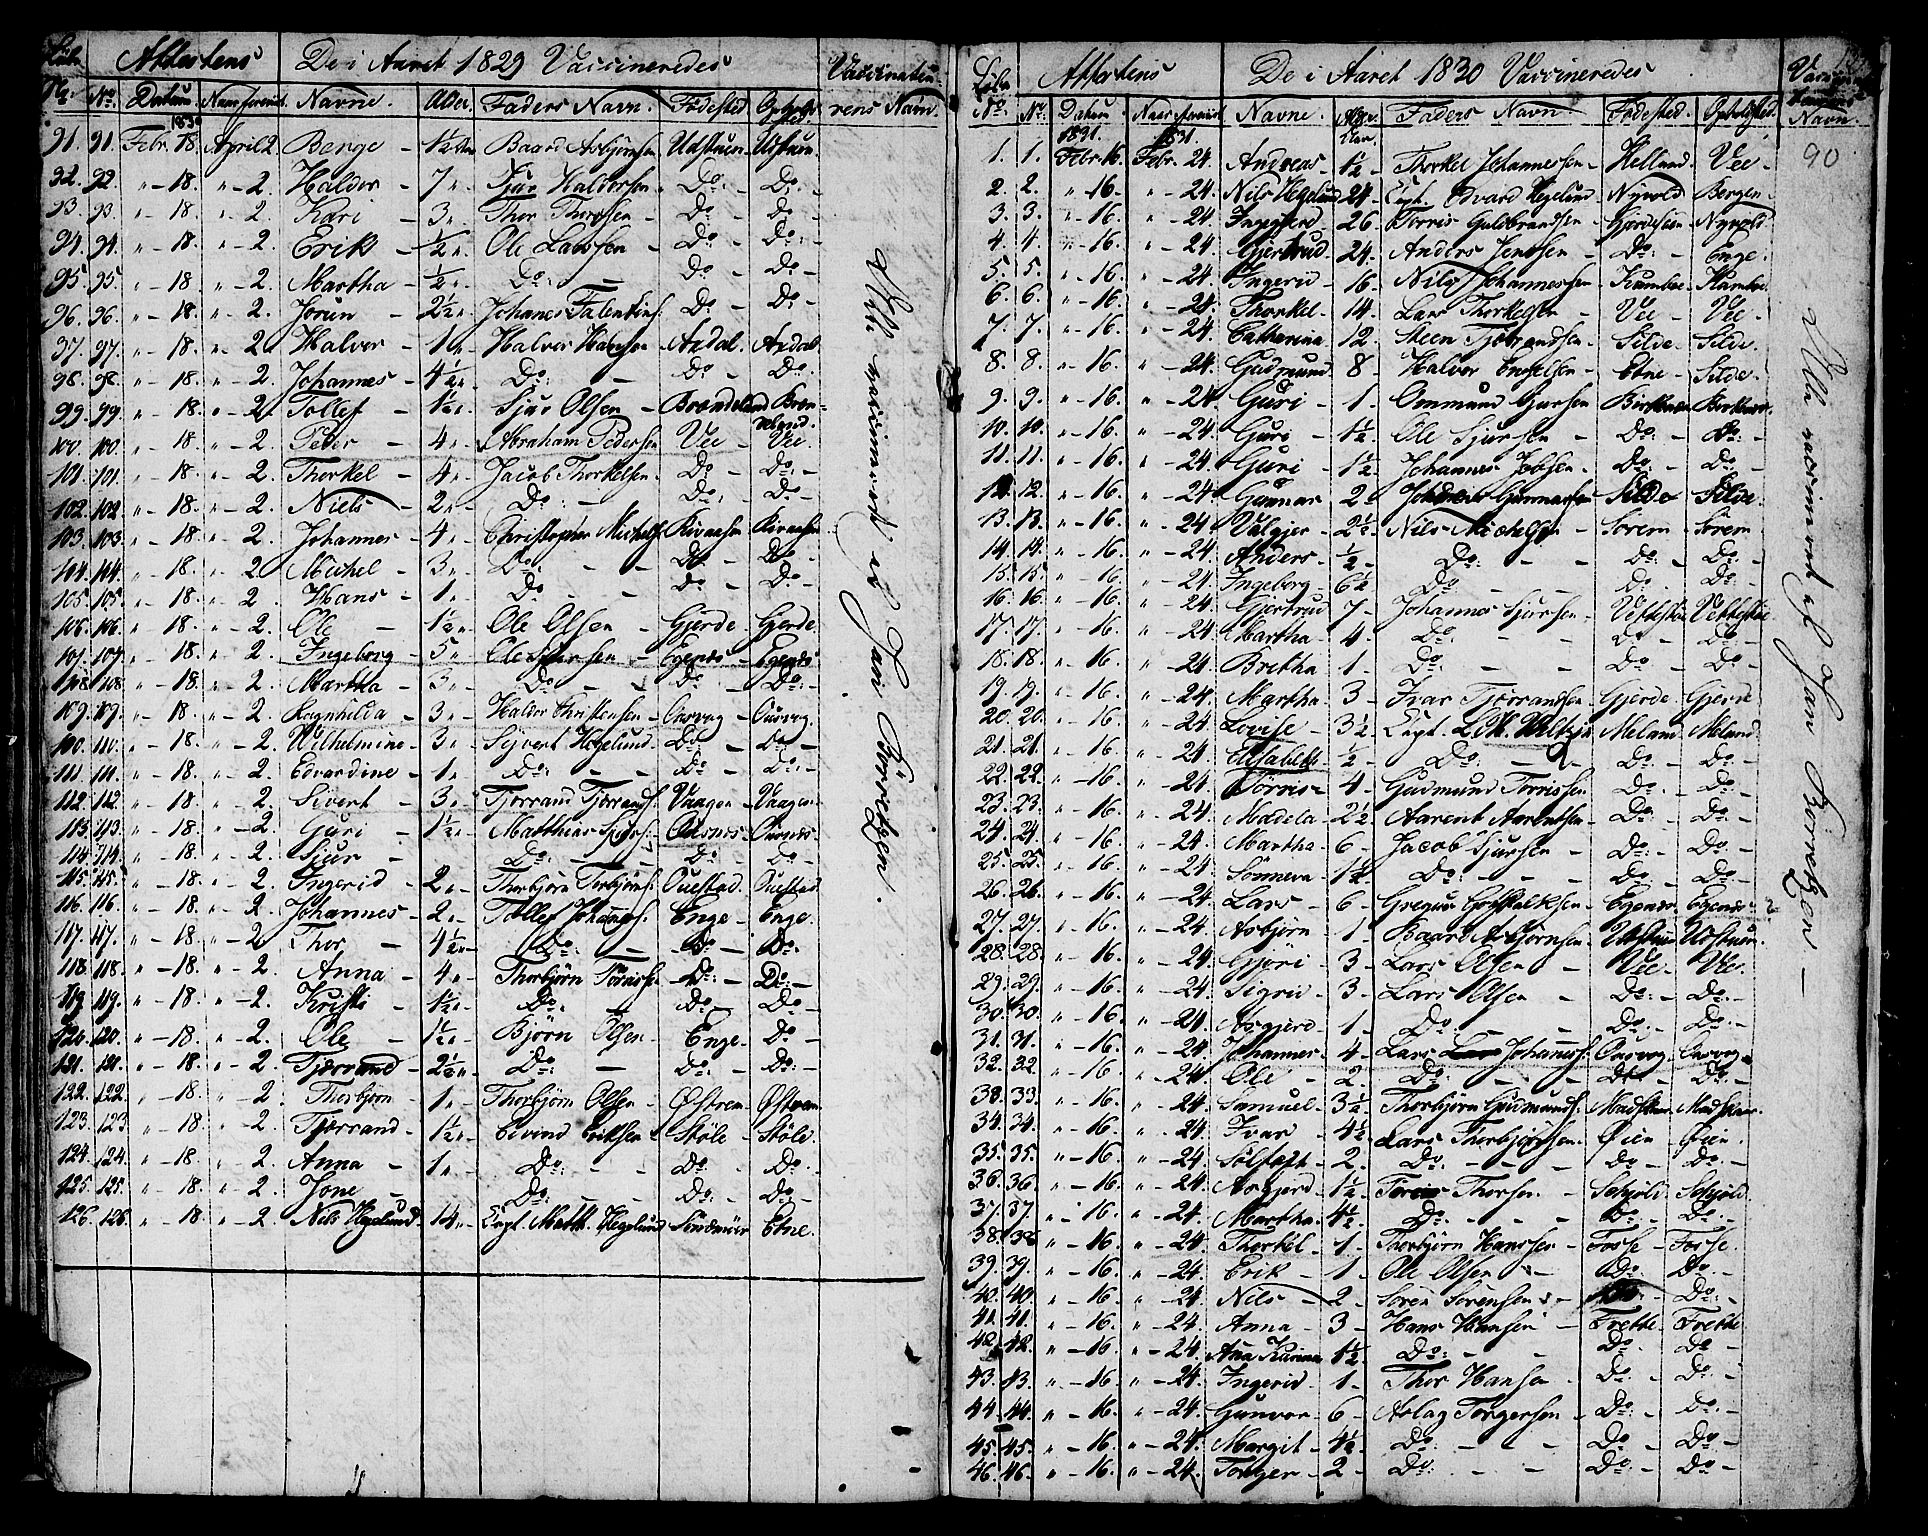 Attestens De i Aaret 1829 Vaccineredes Vaccinatu-
No. Datum Navne. Alder. Faders Navn. Fødested. Opholds rens Navn.
1830
91. 91. Febr. 18. April 2 Benge - 1½ Baard Asbjörnsen Udstuen. Udstuen.
92. 92. " - 18. " - 2. Haldor - 7 " Sjur Haldorsen Do - Do -
93. 93. " - 18. " - 2. Kari - 3 " Thor Thorsen - Do - Do -
94. 94. " - 18. " - 2. Erik - ½ " Ole Larssen - Do - Do -
95. 95. " - 18. " - 2. Martha - ½ " Do - Do - Do -
96. 96. " - 18. " - 2. Jorun - 2½ " Johanes Falentins: Do - Do -
97. 97. " - 18. " - 2. Halvor - 1 " Halvor Hansen - Axdal. Axdal
98. 98. " - 18. " - 2. Johannes - 4½ " Do - Do - Do -
99. 99. " - 18. " - 2. Tollef - 1½ " Sjur Olsen - Brændeland Bræn-
deland.
100. 100. " - 18. " - 2. Peder - 4 " Abraham Pedersen Vee - Vee -
101. 101. " - 18. " - 2. Thorkel - 4 " Jacob Thorkelsen Do - Do -
102. 102. " - 18. " - 2. Niels - 2 " Do - Do - Do -
103. 103. " - 18. " - 2. Johannes - 4 " Christopher Michels:
104. 104. " - 18. " - 2. Michel - 3 " Do - Do - Do -
105. 105. " - 18. " - 2 Hans - 1 " Do - Do - Do -
106. 106. " - 18. " - 2. Ole - 1½ " Ole Olsen - Gjerde - Gjerde.
107. 107. " - 18. " - 2. Ingeborg - 5 " Ole Sjursen - Egenæs - Egenæs
108. 108. " - 18. " - 2. Martha - 3 " Do - Do - Do -
109. 109. " - 18. " - 2. Ragnhilda - 3 " Haldor Christensen - Ousvog - Ousvog
110. 110. " - 18. " - 2. Wilhelmine - 3 " Sijvert Hegelund - Do - Do -
111. 111. " - 18. " - 2. Edvardine - 1 " Do - Do - Do -
112. 112. " - 18. " - 2. Sivert - 3 " Tjerrand Tjerrands: Vaagen - Vaagen
113. 113. " - 18. " - 2. Guri - 1½ " Matthias Sjurs: Ousnæs - Ousnæs
114. 114. " - 18. " - 2. Sjur - Do - Do - Do -
115. 115. " - 18. " - 2. Ingerid - 2 " Thorbjörn Torbjörns: Ouestad. Ouestad.
116. 116. " - 18. " - 2. Johannes - 2 " Tollef Johaness: Enge - Enge.
117. 117. " - 18. " - 2. Thor - 4½ " Do - Do - Do -
118. 118. " - 18. " - 2. Anna - 4 " Thorbjörn Torriss: Do - Do -
119. 119. " - 18. " - 2. Kristi - 1½ " Do - Do - Do -
120. 120. " - 18. " - 2. Ole - 1½ " Björn Olsen - Enge - Do -
121. 121. " - 18. " - 2. Tjærrand - 2½ " Do - Do - Do -
122. 122. " - 18. " - 2 Thorbjörn - 1 " Thorbjörn Olsen - Østren - Østren
123. 123. " - 18. " - 2. Tjærrand - 1½ " Eivind Eriksen - Støle - Støle.
124. 124. " - 18. " - 2. Anna - 1 " Do - Do - Do -
125. 125. " - 18. " - 2. Jone - Do - Do - Do -
126. 126. " - 18. " - 2. Nels Hegelund 14 " Capt. Matth. Hegelund Söndmöer Etne.
Alle vaccineret af Jan Börretzen.
Löbe Attestens De i Aaret 1830 Vaccineredes
No. No. Datum Navne. Faders Navn. Fødested. Opholdsted. Navn.
1831. 1831.
90
1. 1. Febr. 16. Febr. 24. Andreas - 1½ Thorkel Johannessen - Helland. Vee -
2. 2. " - 16. " - 24. Nils Hegelund 24. Capt. Edvard Hegelund Nyvold Bergen.
3. 3. " - 16. " - 24. Ingeherd - 26. Torris Guldbrandsen Nyvold.
4. 4. " - 16. " - 24. Gjertrud 24. Anders Jensen - Do - Enge -
5. 5. " - 16. " - 24. Ingerid - 16. Nils Johannessen - Kambe Kambe.
6. 6. " - 16. " - 24. Thorkel - 14. Lars Thorkelsen - Vee - Vee -
7. 7. " - 16. " - 24. Catharina - 12. Steen Tjerandsen - Silde - Silde.
8. 8. " - 16. " - 24. Gudmund 8 - Halvor Engelsen - Etne - Silde.
9. 9. " - 16. " - 24 Guri - 1 - Ommund Gursen
10. 10. " - 16. " - 24. Guri - 1½ Ole Sjursen - Do - Do -
11. 11. " - 16. " - 24. Guri - 1½ Johannes Jobsen - Do - Do -
12. 12. " - 16. " - 24. Gunnar - 2. Gunnarsen Silde Silde.
13. 13. " - 16. " - 24 Valgjer - 2½ Nils Michelsen - Sörem - Sörem
14. 14. " - 16. " - 24. Anders - ½ Do - Do - Do -
15. 15. " - 16. " - 24 Ingeborg - 6½ Do - Do - Do -
16. 16. " - 16. " - 24. Gjertrud 7 - Johannes Sjursen -
17. 17. " - 16. " - 24. Martha - 4 - Do - Do - Do -
18. 18. " - 16. " - 24. Britha - 1 - Do - Do - Do -
19. 19. " - 16. " - 24. Martha - 3 - Ivar Tjerrandsen Gjerde - Gjerde
20. 20. " - 16. " - 24. Lovise - 3½ Capt. Meland - Meland.
21. 21. " - 16. " - 24. Elisabeth ½ - Do - Do - Do -
22. 22. " - 16. " - 24 Torris - 4 - Gudmund Torrissen Do - Do -
23. 23. " - 16. " - 24. Madela - 2½ Aarent Aarentsen - Do - Do -
24. 24. " - 16. " - 24. Martha - 6 - Jacob Sjursen - Do - Do -
25. 25. " - 16. " - 24. Sönneva - 1½ Do - Do - Do -
26. 26. " - 16. " - 24. Lars - 6 - Gregius Gotskalksen - Egenæs - Egenæs -
27. 27. " - 16. " - 24. Asbjörn - 1 - Baard Asbjörnsen - Udstuen Udstuen.
28. 28. " - 16. " - 24. Gjöri - 3 - Lars Olsen - Vee - Vee.
29. 29. " - 16. " - 24. Sigrid - 3 - Lars Olsen - Do - Do -
30. 30. " - 16. " - 24. Asgjerd - 1 - Do - Do - Do -
31. 31. " - 16. " - 24. Johannes - 4 - Lars Johaness: Ousvog - Ousvog -
32. 32. " - 16. " - 24. Ole - 2. Do - Do - Do -
33. 33. " - 16. " - 24. Samuel - 3½ Thorbjörn Gudmunds:
34. 34. " - 16. " - 24. Ivar - 4½ Lars Thorbjörnsen - Øien - Øien.
35. 35. " - 16. " - 24. 2. Do - Do - Do -
36. 36. " - 16. " - 24. Asgjerd - 1½ Torris Thorsen - Sekjold - Sekjold.
37. 37 " - 16. " - 24. Martha - 4½ Do - Do - Do -
38. 38 " - 16. " - 24. Thorkel - 1 - Thorbjörn Hanssen - Fosse - Fosse.
39. 39. " - 16. " - 24. Erik - 1 - Ole Olsen - Do - Do -
40. 40. " - 16. " - 24. Nils - 2 - Sören Sörensen - Do -
41. 41. " - 16. " - 24. Anna - 3 - Hans Hansen - Frette - Frette
42. 42. " - 16. " - 24. Ana Karina 1½ Do - Do - Do -
43. 43. " - 16. " - 24. Ingerid - 1 - Thor Hansen - Do - Do -
44. 44. " - 16. " - 24. Gunvor - 6 - Aslag Torgersen - Do - Do -
45. 45. " - 16. " - 24. Margit - 4½ Do - Do - Do -
46. 46. " - 16. " - 24. Torger - 2 - Do - Do - Do -
Alle vaccineret af Jan Börretzen -